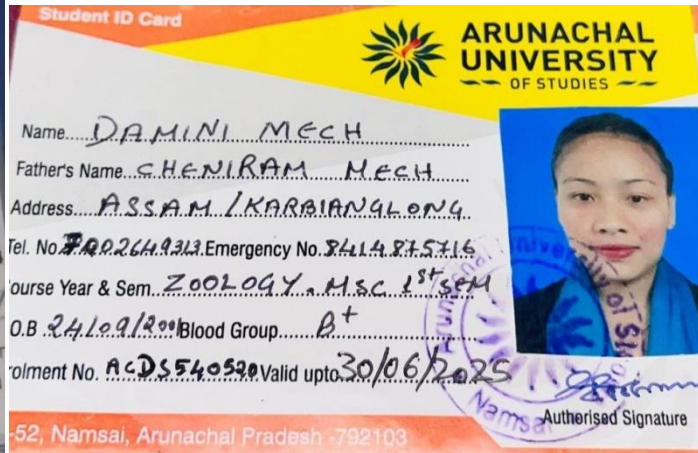 Student ID Card
ARUNACHAL
UNIVERSITY
OF STUDIES
Name.....DAMINI MECH
Father's Name...CHENIRAM MECH
Address....ASSAM/KARBIANGLONG
Tel. No. 7002649313.Emergency No.8414875716
ourse Year & Sem. ZOOLOGY. MSC 1st SEM
O.B 24/09/2001Blood Group....... B+
rolment No. ACDS540520Valid upto30/06/2025
Arunachal University of Studies
Namsai
Authorised Signature
-52, Namsai, Arunachal Pradesh -792103